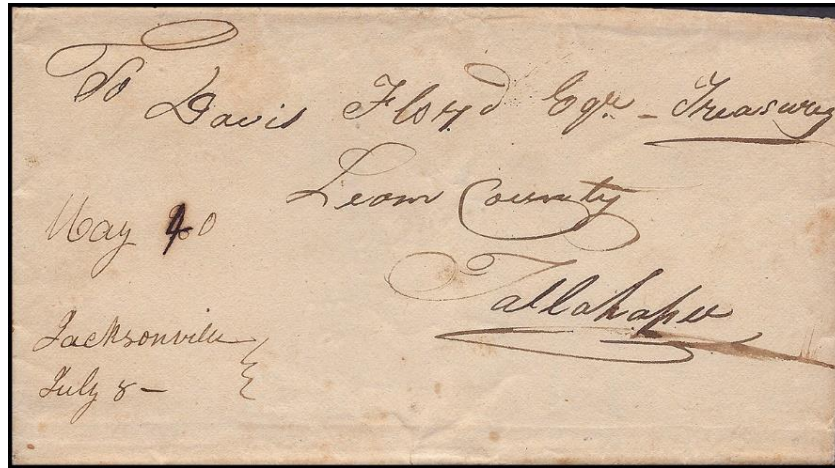 To
Davis Floyd Esqr - Treasurey
Leon County
Tallahassee
May 0
Jacksonville
July 8 -